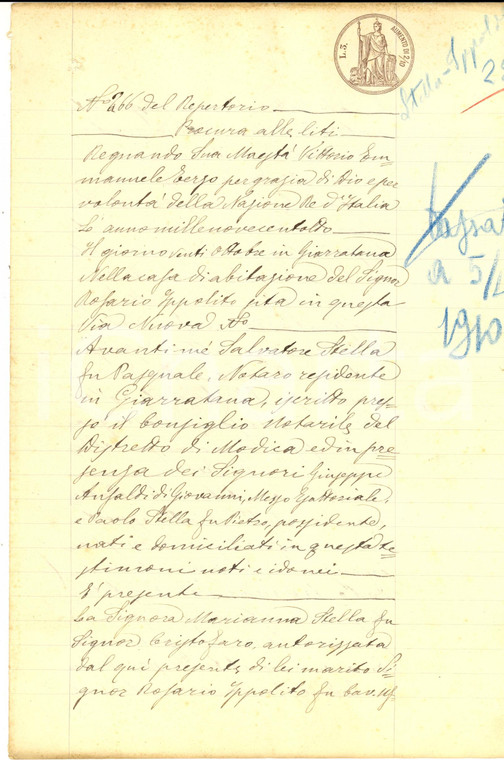 L. 3.
AUMENTO DI 2/10
Stella-Ippolito
No 266 del Repertorio
Procura alle liti
Regnando Sua Maestà Vittorio Em=
manuele terzo per grazia di Dio e per
volontà della Nazione Re d'Italia
Lo anno millenovecentotto
Il giorno venti ottobre in Giarratana
Nella casa di abitazione del Signor
Rosario Ippolito sita in questa
Via Nuova No
Avanti me Salvatore Stella
fu Pasquale, Notaro residente
in Giarratana, iscritto pres=
so il Consiglio Notarile del
Distretto di Modica ed in pre=
senza dei Signori Giuseppe
Ansaldi di Giovanni, Messo Esattoriale,
e Paolo Stella fu Pietro, possidente,
nati e domiciliati in questa te=
stimoni noti e idonei
E' presente
La Signora Marianna Stella fu
Signor Cristofaro, autorizzata
dal quì presente di lei marito Si=
gnor Rosario Ippolito fu Cav.
a 5/
1910